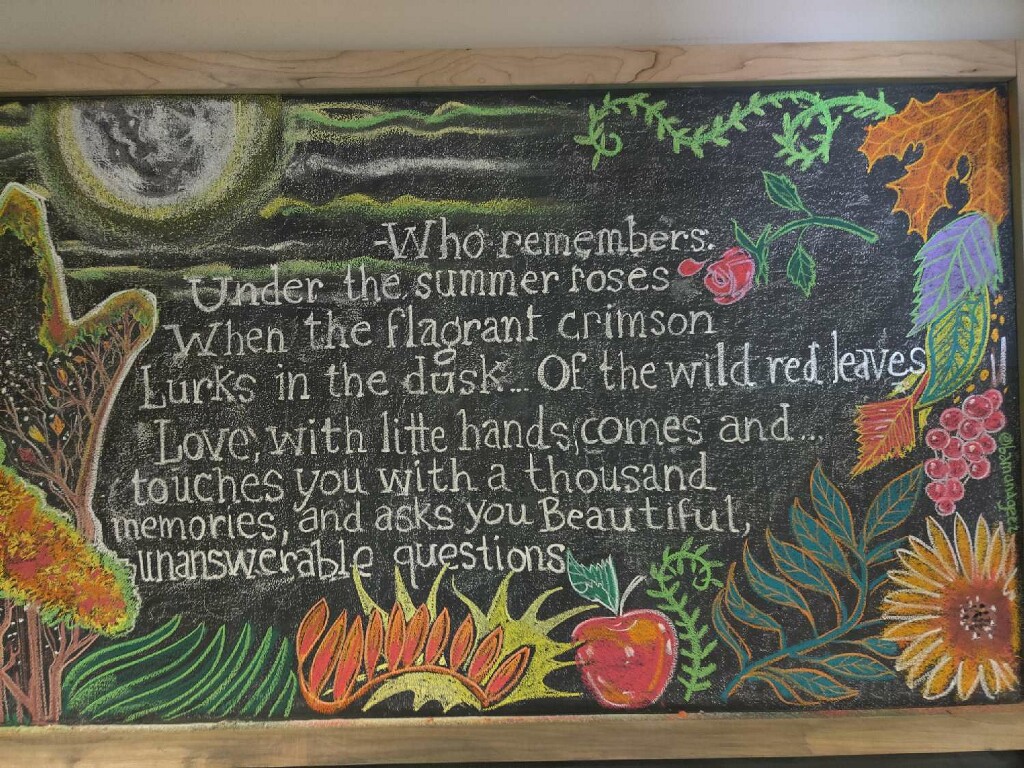 -Who remembers.
Under the summer roses
When the flagrant crimson
Lurks in the dusk... Of the wild red leaves
Love, with litte hands, comes and...
touches you with a thousand
memories, and asks you Beautiful,
unanswerable questions